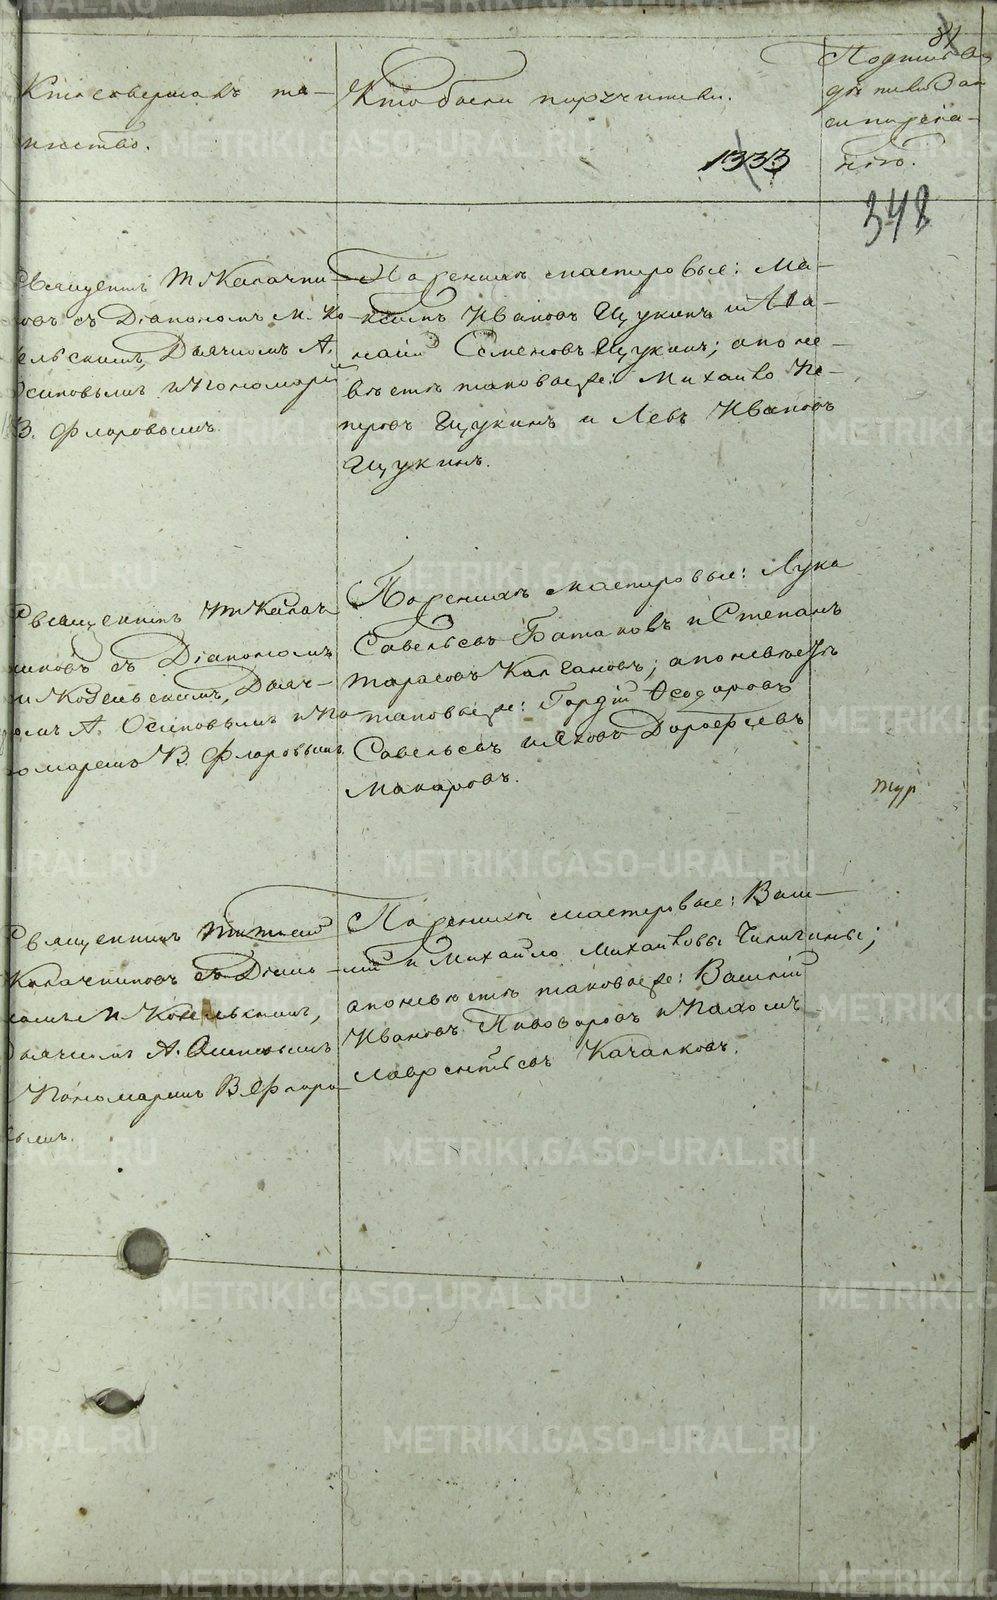 84
Кто совершалъ та-
инство.
Кто были поручители.
Подпись
1333
348
Священникъ Т. Калачни
ковъ съ Діакономъ М. Ко
зельскимъ, Дьячкомъ А.
Осиповымъ и Пономаремъ
В. Флоровымъ.
По женихѣ мастеровые: Ма-
ксимъ Ивановъ Щукинъ и Аѳа-
насій Семеновъ Щукинъ; а по не-
вѣстѣ таковые же: Михайло Пе-
тровъ Щукинъ и Левъ Ивановъ
Щукинъ.
Священникъ Т. Калач
никовъ съ Діакономъ
М. Козельскимъ, Дьяч-
комъ А. Осиповымъ и По
номаремъ В. Флоровымъ
По женихѣ мастеровые: Лука
Савельевъ Батаковъ и Степанъ
Тарасовъ Колгановъ; а по невѣстѣ
таковые же: Гордѣй Ѳедоровъ
Савельевъ и Яковъ Дорофеевъ
Макаровъ.
тур
Священникъ Тимофей
Калачниковъ съ Діако-
номъ М. Козельскимъ,
Дьячкомъ А. Осиповымъ
и Пономаремъ В. Флоро
вымъ.
По женихѣ мастеровые: Васи-
лій и Михайло Михайловы Чиличины;
а по невѣстѣ таковые же: Василій
Ивановъ Пивоваровъ и Пахомъ
Лаврентьевъ Качалковъ.
METRIKI.GASO-URAL.RU